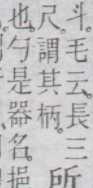 斗。毛云。長三
尺。謂其柄。所
也。勺是器名。挹